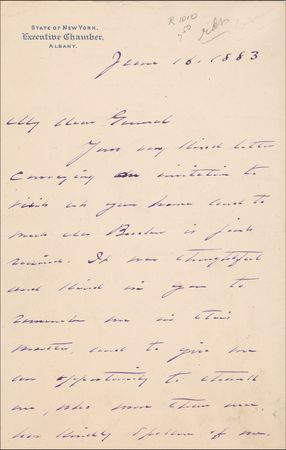 STATE OF NEW YORK.
Executive Chamber,
ALBANY.
R 1010
June 16. 1883
My dear General
Your very kind letter
conveying an invitation to
visit at your home and to
meet Mr Beecher is just
received. It was thoughtful
and kind in you to
remember me in this
matter, and to give me
an opportunity to thank
one, who more than once,
has kindly spoken of me.